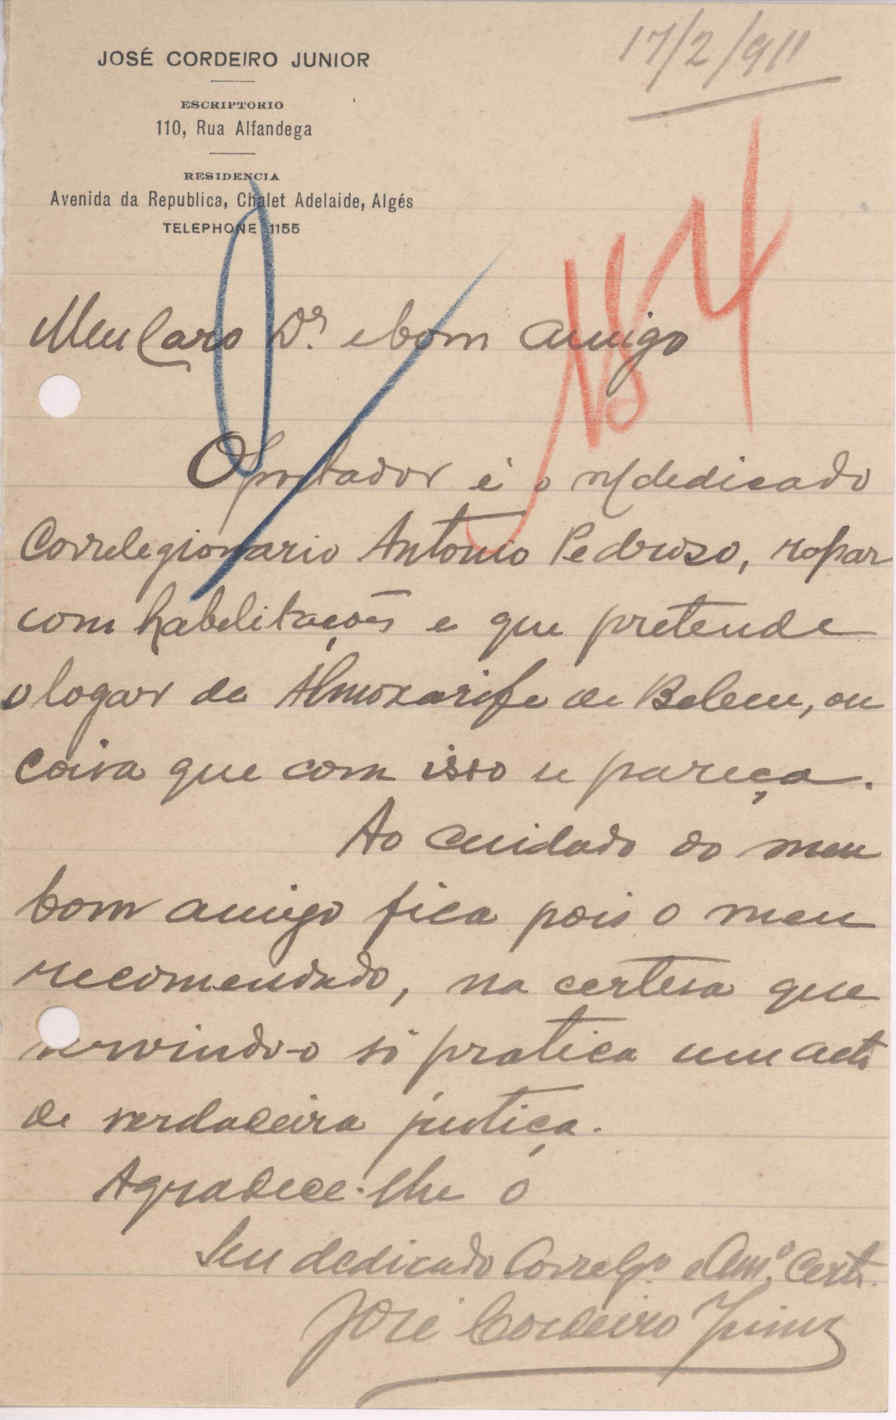 JOSÉ CORDEIRO JUNIOR
17/2/911
ESCRIPTORIO
110, Rua Alfandega
RESIDENCIA
Avenida da Republica, Chalet Adelaide, Algés
TELEPHONE 1155
Meu Caro Dr. e bom amigo
O portador é o n/ dedicado
Correlegionario Antonio Pedroso, rapar
com habelitações e que pretende
o logar de Almoxarife de Belem, ou
coisa que com isso se pareça.
Ao cuidado do meu
bom amigo fica pois o meu
recomendado, na certesa que
servindo-o só pratica um acto
de verdadeira justiça.
Agradece-lhe o
Seu dedicado Correlgo. e Amo. Certo.
José Cordeiro Junior